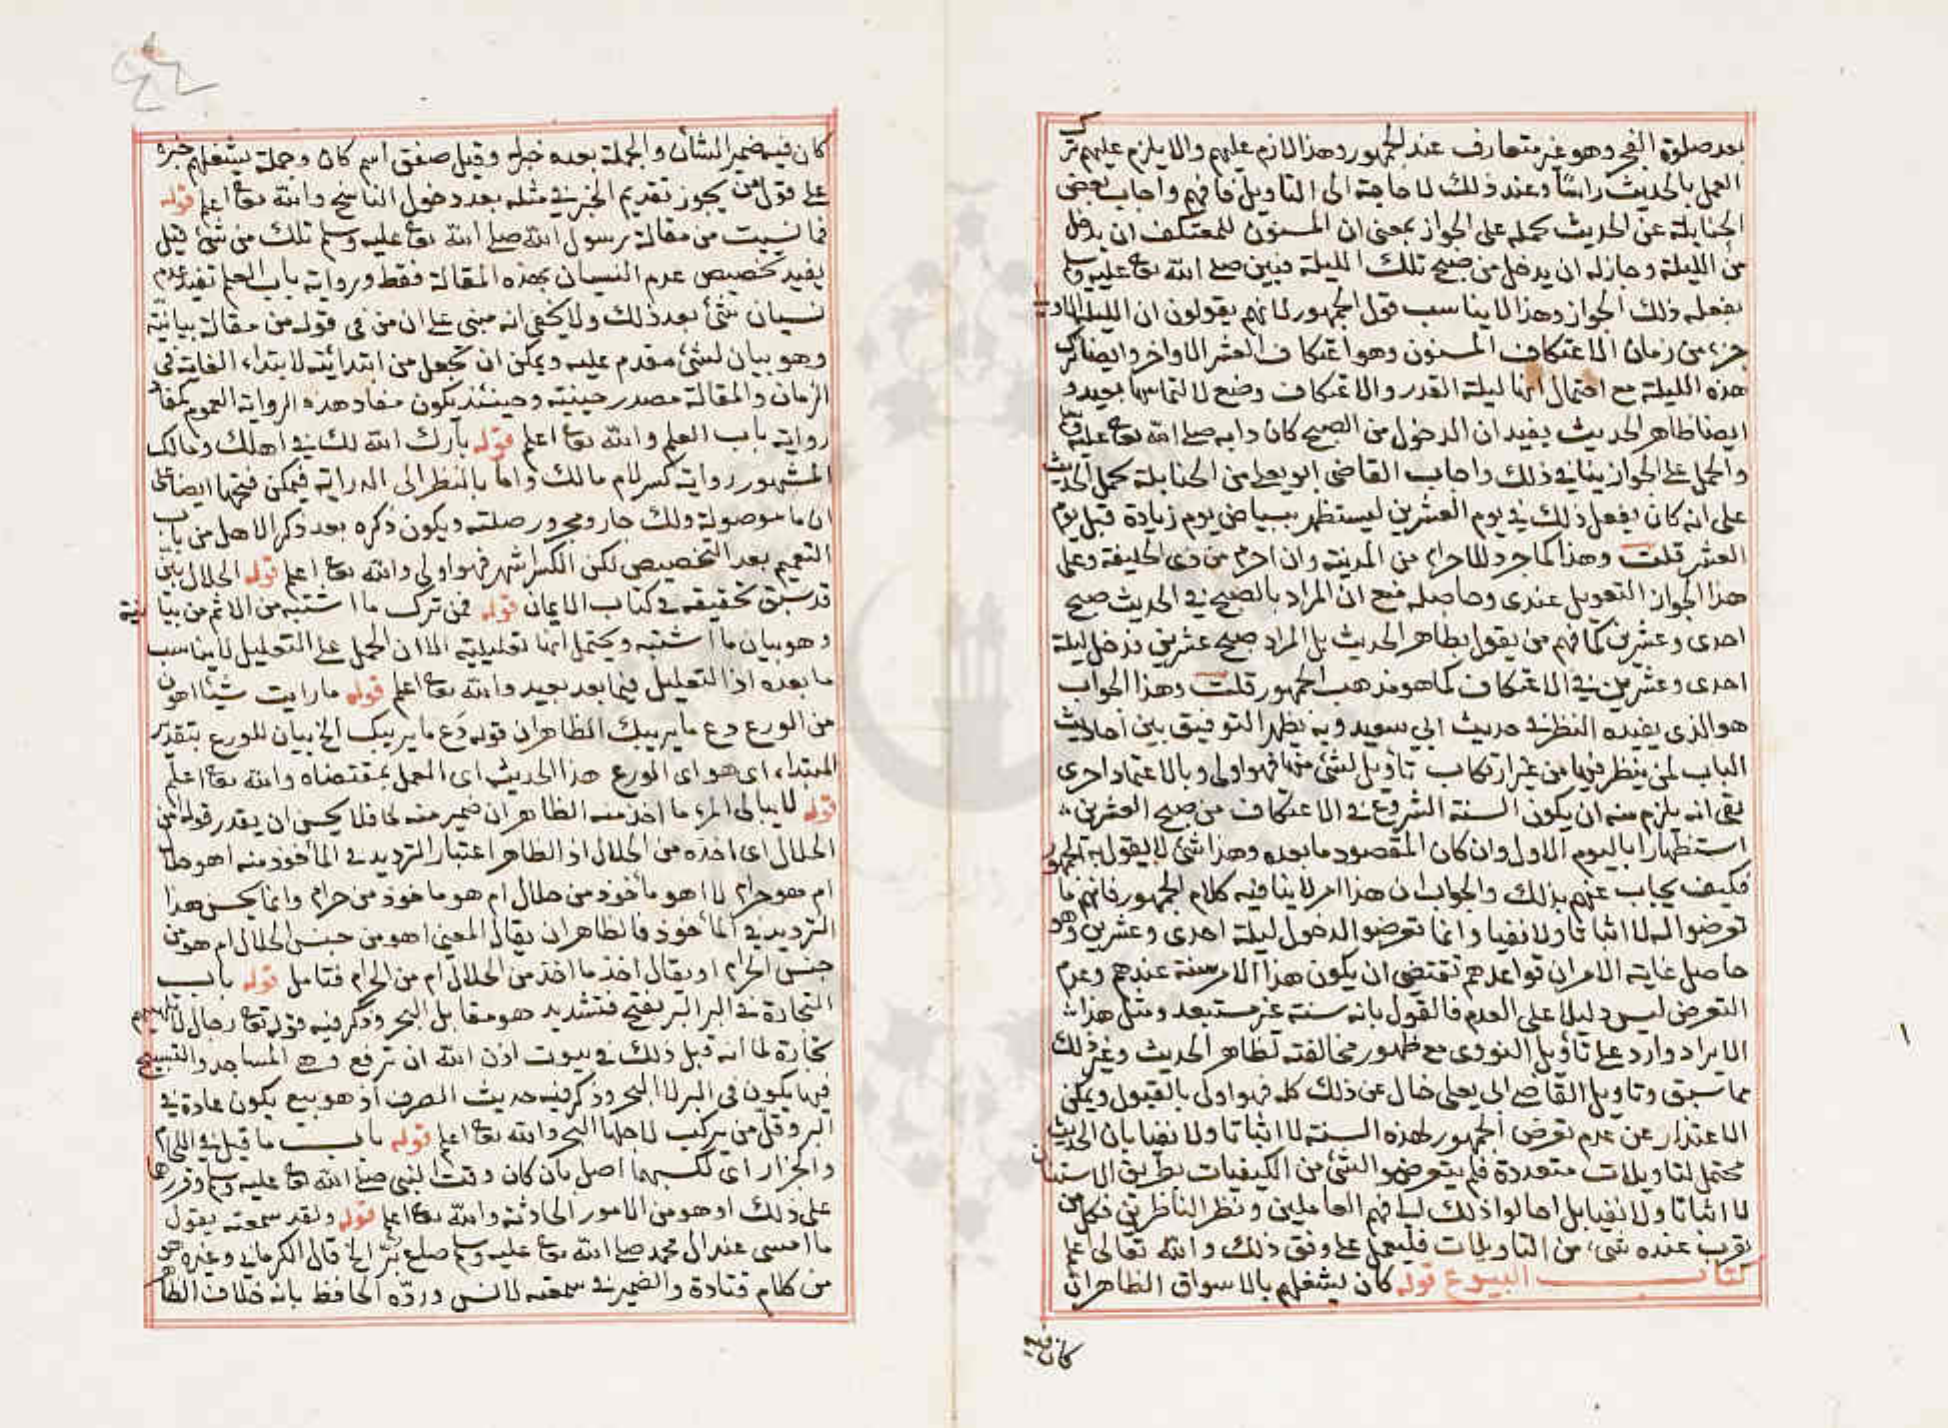 بعد صلوة الفجر وهو غير متعارف عند الجمهور وهذا لازم عليهم والا يلزم عليهم ترك
العمل بالحديث راسًا وعند ذلك لا حاجة الى التاويل فافهم واجاب بعض
الحنابلة عن الحديث بحمله على الجواز بمعنى ان المسنون للمعتكف ان يدخل
من الليلة وجاز له ان يدخل من صبح تلك الليلة فبين صلى الله تعا عليه وسلم
بفعله ذلك الجواز وهذا لا يناسب قول الجمهور لانهم يقولون ان الليلة الاولى
جزء من زمان الاعتكاف المسنون وهو اعتكاف العشر الاواخر وايضا ترك
هذه الليلة مع احتمال انها ليلة القدر والاعتكاف وضع لالتماسها بعيد و
ايضا ظاهر الحديث يفيد ان الدخول من الصبح كان دابه صلى الله تعا عليه وسلم
والحمل على الجواز ينافي ذلك واجاب القاضى ابو يعلى من الحنابلة بحمل الحديث
على انه كان يفعل ذلك في يوم العشرين ليستظهر ببياض يوم زيادة قبل يوم
العشر قلت وهذا كما جرد للاحرام من المدينة وان احرم من ذى الحليفة وعلى
هذا الجواز التعويل عندى وحاصله منع ان المراد بالصبح في الحديث صبح
احدى وعشرين كما فهم من يقول بظاهر الحديث بل المراد صبح عشرين فدخل ليلة
احدى وعشرين في الاعتكاف كما هو مذهب الجمهور قلت وهذا الجواب
هو الذى يفيده النظر في حديث ابي سعيد وبه يظهر التوفيق بين احاديث
الباب لمن ينظر فيها من غير ارتكاب تأويل لشئ منها فهو اولى وبالاعتماد احرى
بقى انه يلزم منه ان يكون السنة الشروع في الاعتكاف من صبح العشرين
استظهارا باليوم الاول وان كان المقصود ما بعده وهذا شئ لا يقول به الجمهور
فكيف يجاب عنهم بذلك والجواب ان هذا امر لا ينافيه كلام الجمهور فانهم ما
تعرضوا له لا اثباتا ولا نفيا وانما تعرضوا لدخول ليلة احدى وعشرين وهو
حاصل غاية الامر ان قواعدهم تقتضى ان يكون هذا الامر سنة عندهم وعدم
التعرض ليس دليلا على العدم فالقول بانه سنة غير مستبعد ومثل هذا
الايراد وارد على تأويل النووى مع ظهور مخالفته لظاهر الحديث وغير ذلك
مما سبق وتاويل القاضى ابى يعلى خال عن ذلك كله فهو اولى بالقبول ويمكن
الاعتذار عن عدم تعرض الجمهور لهذه السنة لا اثباتا ولا نفيا بان الحديث
محتمل لتاويلات متعددة فلم يتعرضوا لشئ من الكيفيات بطريق الاستنان
لا اثباتا ولا نفيا بل احالوا ذلك الى فهم العاملين ونظر الناظرين فكل من
يقرب عنده شئ من التاويلات فليعمل على وفق ذلك والله تعالى اعلم
كتاب البيوع قوله كان يشغلهم بالاسواق الظاهر ان
كان فيه
كان فيه ضمير الشأن والجملة بعده خبره وقيل صفق اسم كان وجملة يشغلهم خبره
على قول من يجوز تقديم الخبر في مثله بعد دخول الناسخ والله تعا اعلم قوله
فما نسيت من مقالة رسول الله صلى الله تعا عليه وسلم تلك من شئ قيل
يفيد تخصيص عدم النسيان بهذه المقالة فقط ورواية باب العلم تفيد عدم
نسيان شئ بعد ذلك ولا يخفى انه مبنى على ان من في قوله من مقالة بيانية
وهو بيان لشئ مقدم عليه ويمكن ان تجعل من ابتدائية لابتداء الغاية في
الزمان والمقالة مصدر حينية وحينئذ يكون مفاد هذه الرواية العموم كمفاد
رواية باب العلم والله تعا اعلم قوله بارك الله لك في اهلك ومالك
المشهور رواية كسر لام مالك واما بالنظر الى الدراية فيمكن فتحها ايضا على
ان ما موصولة ولك جار ومجرور صلته ويكون ذكره بعد ذكر الاهل من باب
التعميم بعد التخصيص لكن الكسر اشهر فهو اولى والله تعا اعلم قوله الحلال بيّن
قد سبق تحقيقه في كتاب الايمان قوله فمن ترك ما اشتبه من الاثم من بيانية
وهو بيان ما اشتبه ويحتمل انها تعليلية الا ان الحمل على التعليل لا يناسب
ما بعده اذ التعليل فيما بعد بعيد والله تعا اعلم قوله ما رايت شيئا اهون
من الورع دع ما يريبك الظاهر ان قوله دَع ما يريبك الخ بيان للورع بتقدير
المبتداء اى هو اى الورع هذا الحديث اى العمل بمقتضاه والله تعا اعلم
قوله لا يبالى المرء ما اخذ منه الظاهر ان ضمير منه لما فلا يحسن ان يقدر قوله من
الحلال اى اخذه من الحلال اذ الظاهر اعتبار الترديد في المأخوذ منه اهو حلال
ام هو حرام لا اهو مأخوذ من حلال ام هو ماخوذ من حرام وانما يحسن هذا
الترديد في المأخوذ فالظاهر ان يقال المعنى اهو من جنس الحلال ام هو من
جنس الحرام او يقال اخذ ما اخذ من الحلال ام من الحرام فتامل قوله باب
التجارة في البر البر بفتح فتشديد هو مقابل البحر وذكر فيه قوله تعا رجال لا تلهيهم
تجارة لما انه قبل ذلك في بيوت اذن الله ان ترفع وهى المساجد والتسبيح
فيها يكون في البر لا البحر وذكر فيه حديث الصرف اذ هو بيع يكون عادة في
البر وقلّ من يركب لاجلها البحر والله تعا اعلم قوله باب ما قيل في اللحام
والجزار اى لكسبهما اصل بأن كان وقت النبي صلى الله تعا عليه وسلم وقررها
على ذلك او هو من الامور الحادثة والله تعا اعلم قوله ولقد سمعته يقول
ما امسى عند ال محمد صلى الله تعا عليه وسلم صاع بُرّ الخ قال الكرمانى وغيره هو
من كلام قتادة والضمير في سمعته لانس وردّه الحافظ بانه خلاف الظاهر